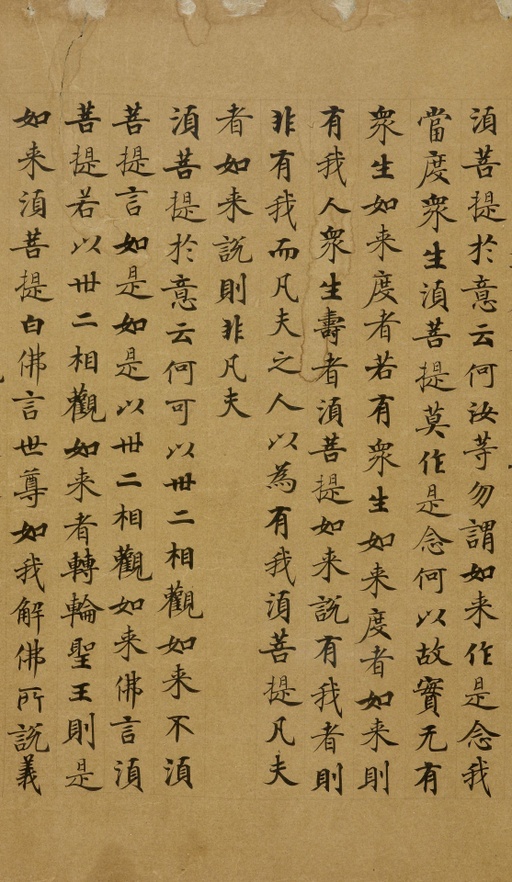 湏菩提於意云何汝等勿謂如来作是念我
當度衆生湏菩提莫作是念何以故實无有
衆生如来度者若有衆生如来度者如来則
有我人衆生壽者湏菩提如来說有我者則
非有我而凡夫之人以為有我湏菩提凡夫
者如来說則非凡夫
湏菩提於意云何可以卅二相觀如来不湏
菩提言如是如是以卅二相觀如来佛言湏
菩提若以卅二相觀如来者轉輪聖王則是
如来湏菩提白佛言世尊如我解佛所說義